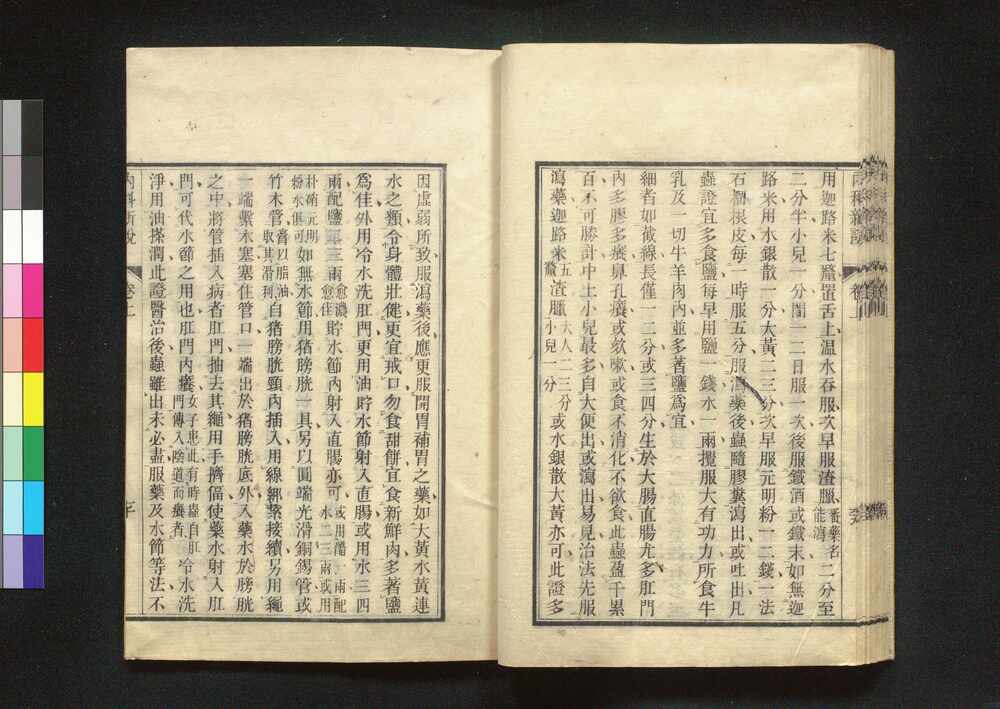 用迦路米七釐置舌上温水吞服次早服渣臘番藥名能瀉二分至
二分半小兒一分閒一二日服一次後服鐵酒或鐵末如無迦
路米用水銀散一分大黃二三分次早服元明粉一二錢一法
石榴根皮每一時服五分服瀉藥後蟲隨膠糞瀉出或吐出凡
蟲證宜多食鹽每早用鹽一錢水一兩攪服大有功力所食牛
乳及一切牛羊肉內並多著鹽爲宜
細者如截線長僅一二分或三四分生於大腸直腸尤多肛門
內多膠多癢鼻孔癢或欬嗽或食不消化不欲食此蟲盈千累
百不可勝計中土小兒最多自大便出或瀉出易見治法先服
瀉藥迦路米五釐渣臘大人二三分小兒一分或水銀散大黃亦可此證多
因虛弱所致服瀉藥後應更服開胃補胃之藥如大黃水黃連
水之類令身體壯健更宜戒口勿食甜餅宜食新鮮肉多著鹽
爲佳外用冷水洗肛門更用油貯水節射入直腸或用水三四
兩配鹽二三兩愈濃愈佳貯水節內射入直腸亦可或用醋一兩配水二三兩或用
朴硝元明粉水俱可如無水節用猪膀胱一具另以圓端光滑銅錫管或
竹木管膏以脂油取其滑利自猪膀胱頸內插入用線綑緊接續另用繩
一端繫木塞塞住管口一端出於猪膀胱底外入藥水於膀胱
之中將管插入病者肛門抽去其繩用手擠偪使藥水射入肛
門可代水節之用也肛門內癢女子患此有時蟲自肛門傳入陰道而癢者冷水洗
淨用油搽潤此證醫治後蟲雖出未必盡服藥及水節等法不
內科新說
卷上